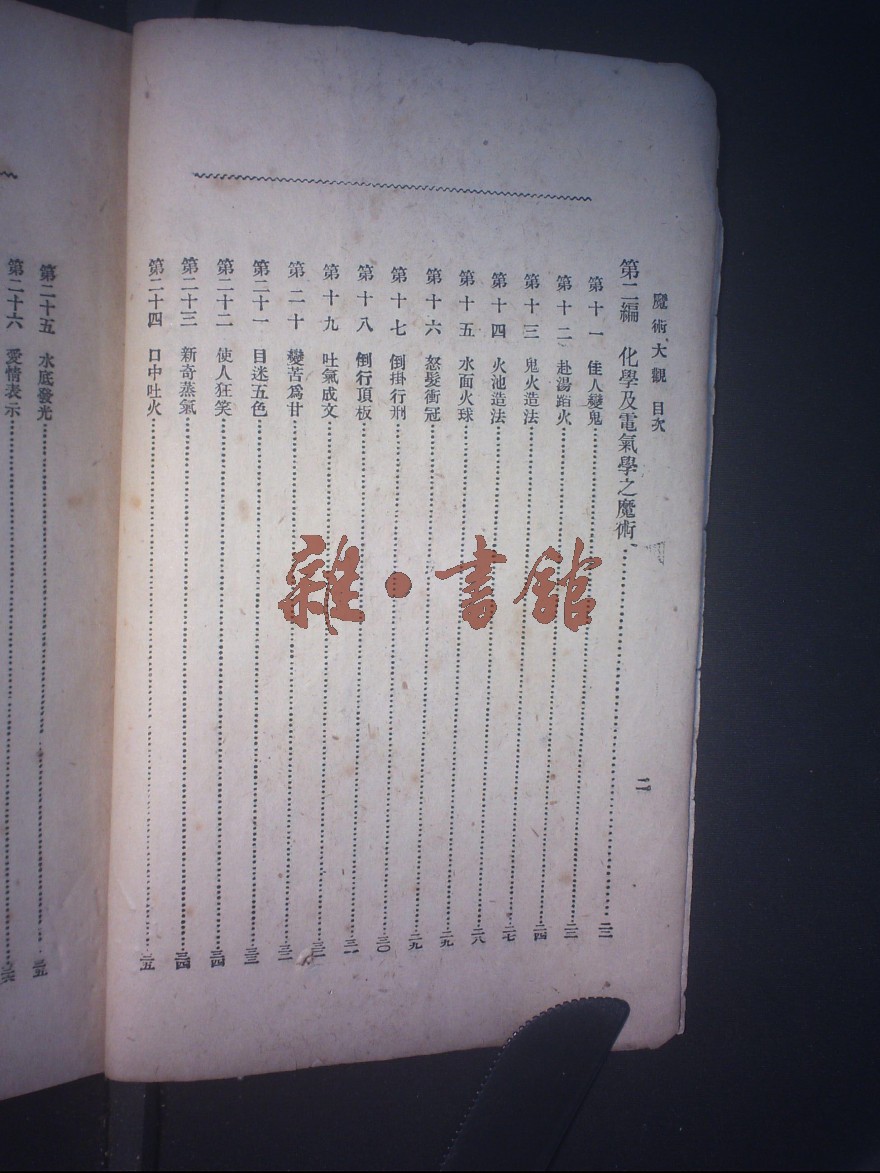 魔術大觀 目次 二
第二編 化學及電氣學之魔術……二二
第十一 佳人變鬼……二二
第十二 赴湯蹈火……二四
第十三 鬼火造法……二七
第十四 火池造法……二八
第十五 水面火球……二九
第十六 怒髮衝冠……二九
第十七 倒掛行刑……三〇
第十八 倒行頂板……三一
第十九 吐氣成文……三二
第二十 變苦爲甘……三二
第二十一 目迷五色……三三
第二十二 使人狂笑……三四
第二十三 新奇蒸氣……三四
第二十四 口中吐火……三五
第二十五 水底發光……三五
第二十六 愛情表示……三六
雜·書館